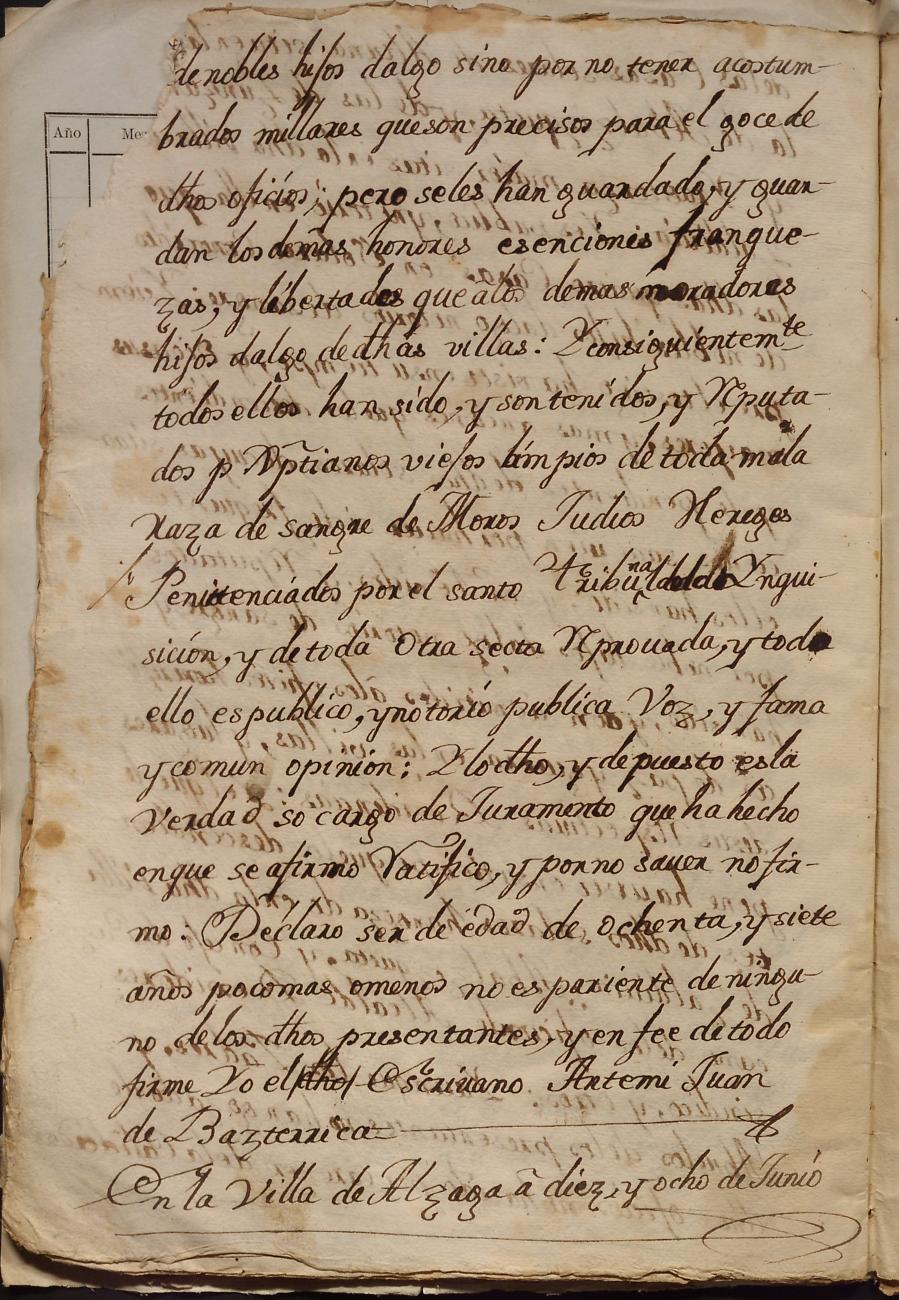 Año Me
de nobles hijos dalgo sino por no tener acostum-
brados millares que son precisos para el goce de
dhos oficios; pero seles han guardado, y guar-
dan los demas honores esenciones franque-
zas, y libertades que a los demas moradores
hijos dalgo de dhas villas: Y consiguientemte
todos ellos han sido, y son tenidos, y Reputa-
dos p Xptianos viejos limpios de toda mala
raza de sangre de Moros Judios Hereges
Penitenciados por el santo Tribunal de la Ynqui-
sición, y de toda otra secta Reprovada, y todo
ello es publico, y notorio publica voz, y fama
y comun opinion: Y lo dho, y depuesto es la
verdad so cargo de Juramento que ha hecho
en que se afirmo Ratifico, y por no saver no fir-
mo: Déclaro ser de edad de ochenta, y siete
años poco mas o menos no es pariente de ningu-
no de los dhos presentantes, y en fee de todo
firme Yo el dho Escrivano Antemi Juan
de Bazterrica
En la Villa de Alzaga a diez, y ocho de Junio